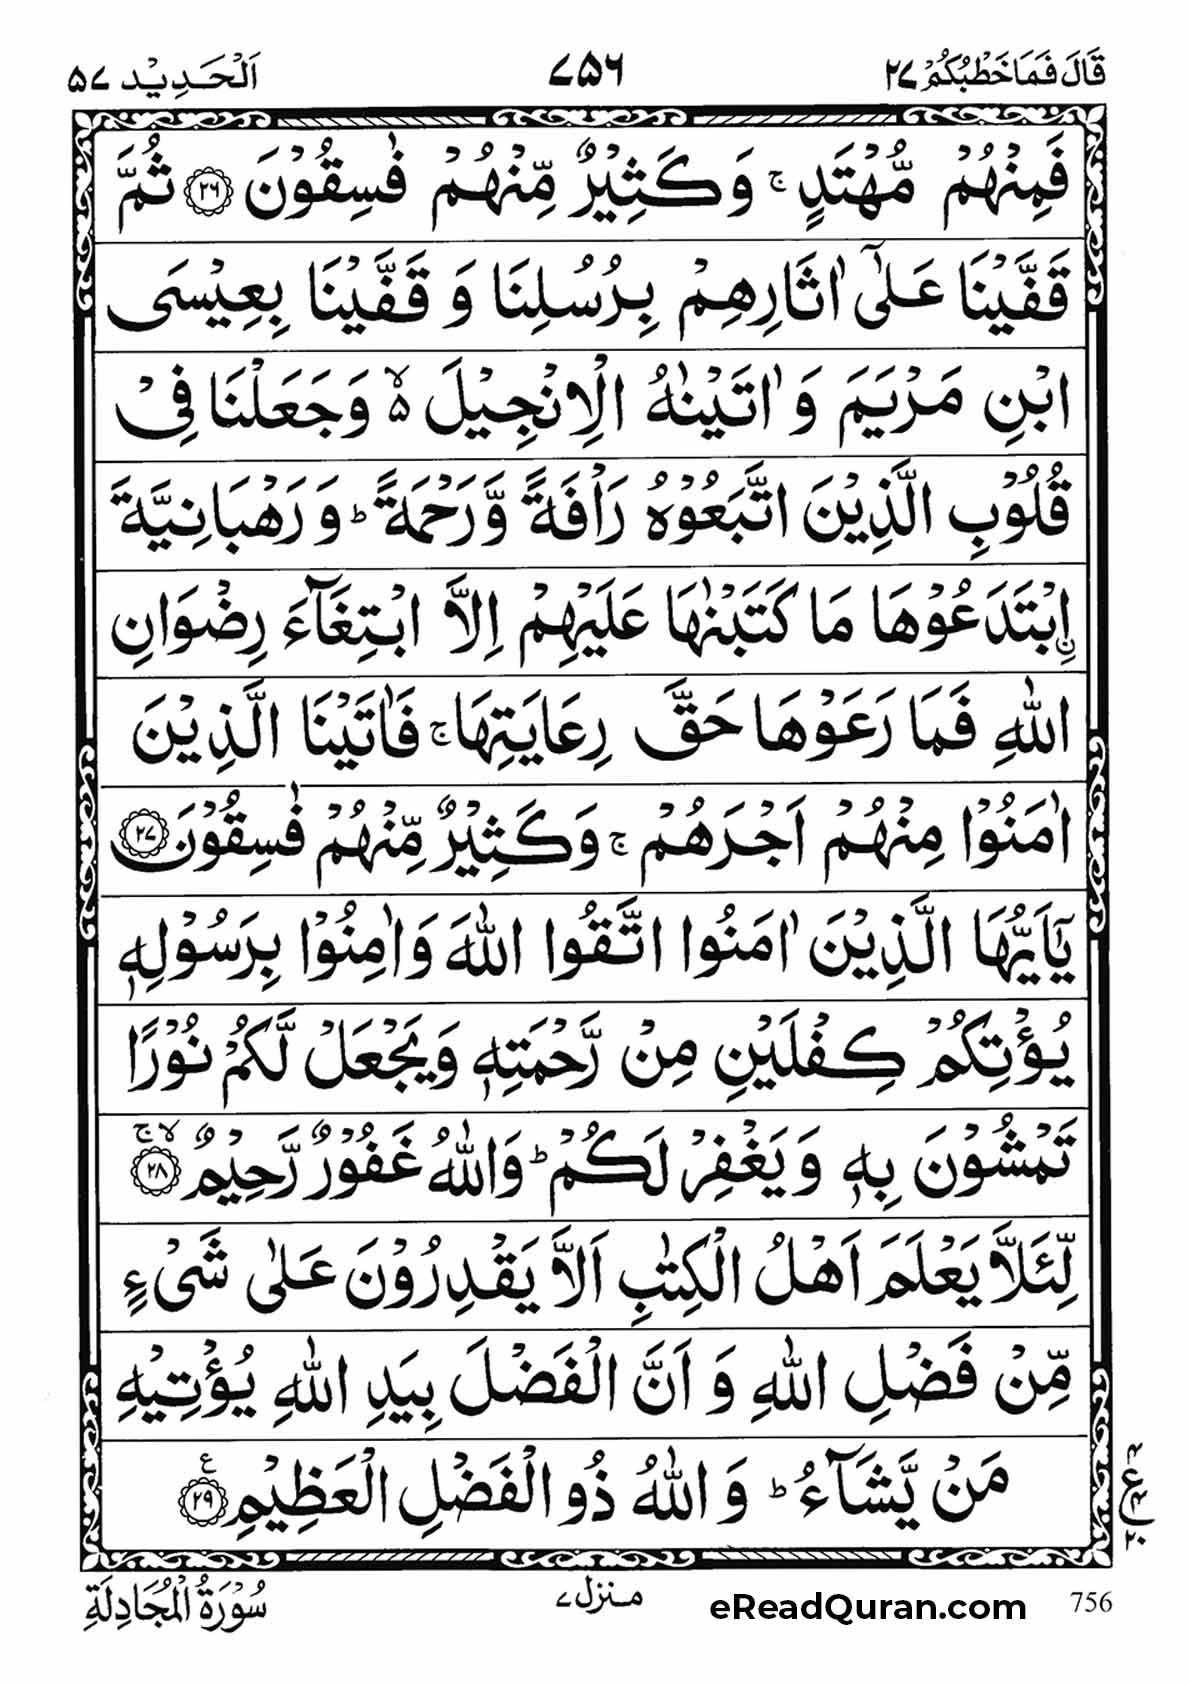 قَالَ فَمَا خَطْبُكُمْ ٢٧ ٧٥٦ اَلْحَدِيْد ٥٧
فَمِنْهُمْ مُّهْتَدٍ ۚ وَكَثِيْرٌ مِّنْهُمْ فٰسِقُوْنَ ﴿٢٦﴾ ثُمَّ
قَفَّيْنَا عَلٰٓى اٰثَارِهِمْ بِرُسُلِنَا وَ قَفَّيْنَا بِعِيْسَى
ابْنِ مَرْيَمَ وَ اٰتَيْنٰهُ الْاِنْجِيْلَ ۙ۵ وَ جَعَلْنَا فِىْ
قُلُوْبِ الَّذِيْنَ اتَّبَعُوْهُ رَاْفَةً وَّ رَحْمَةً ؕ وَ رَهْبَانِيَّةَ
اۨبْتَدَعُوْهَا مَا كَتَبْنٰهَا عَلَيْهِمْ اِلَّا ابْتِغَآءَ رِضْوَانِ
اللّٰهِ فَمَا رَعَوْهَا حَقَّ رِعَايَتِهَا ۚ فَاٰتَيْنَا الَّذِيْنَ
اٰمَنُوْا مِنْهُمْ اَجْرَهُمْ ۚ وَ كَثِيْرٌ مِّنْهُمْ فٰسِقُوْنَ ﴿٢٧﴾
يٰۤاَيُّهَا الَّذِيْنَ اٰمَنُوا اتَّقُوا اللّٰهَ وَاٰمِنُوْا بِرَسُوْلِهٖ
يُؤْتِكُمْ كِفْلَيْنِ مِنْ رَّحْمَتِهٖ وَيَجْعَلْ لَّكُمْ نُوْرًا
تَمْشُوْنَ بِهٖ وَ يَغْفِرْ لَكُمْ ؕ وَاللّٰهُ غَفُوْرٌ رَّحِيْمٌ ۙۚ ﴿٢٨﴾
لِّئَلَّا يَعْلَمَ اَهْلُ الْكِتٰبِ اَلَّا يَقْدِرُوْنَ عَلٰى شَىْءٍ
مِّنْ فَضْلِ اللّٰهِ وَ اَنَّ الْفَضْلَ بِيَدِ اللّٰهِ يُؤْتِيْهِ
مَنْ يَّشَآءُ ؕ وَ اللّٰهُ ذُو الْفَضْلِ الْعَظِيْمِ ﴿٢٩﴾ ع
٤ ع ١٠ ٢٠
سُوْرَةُ الْمُجَادِلَةِ منزل ٧ eReadQuran.com 756